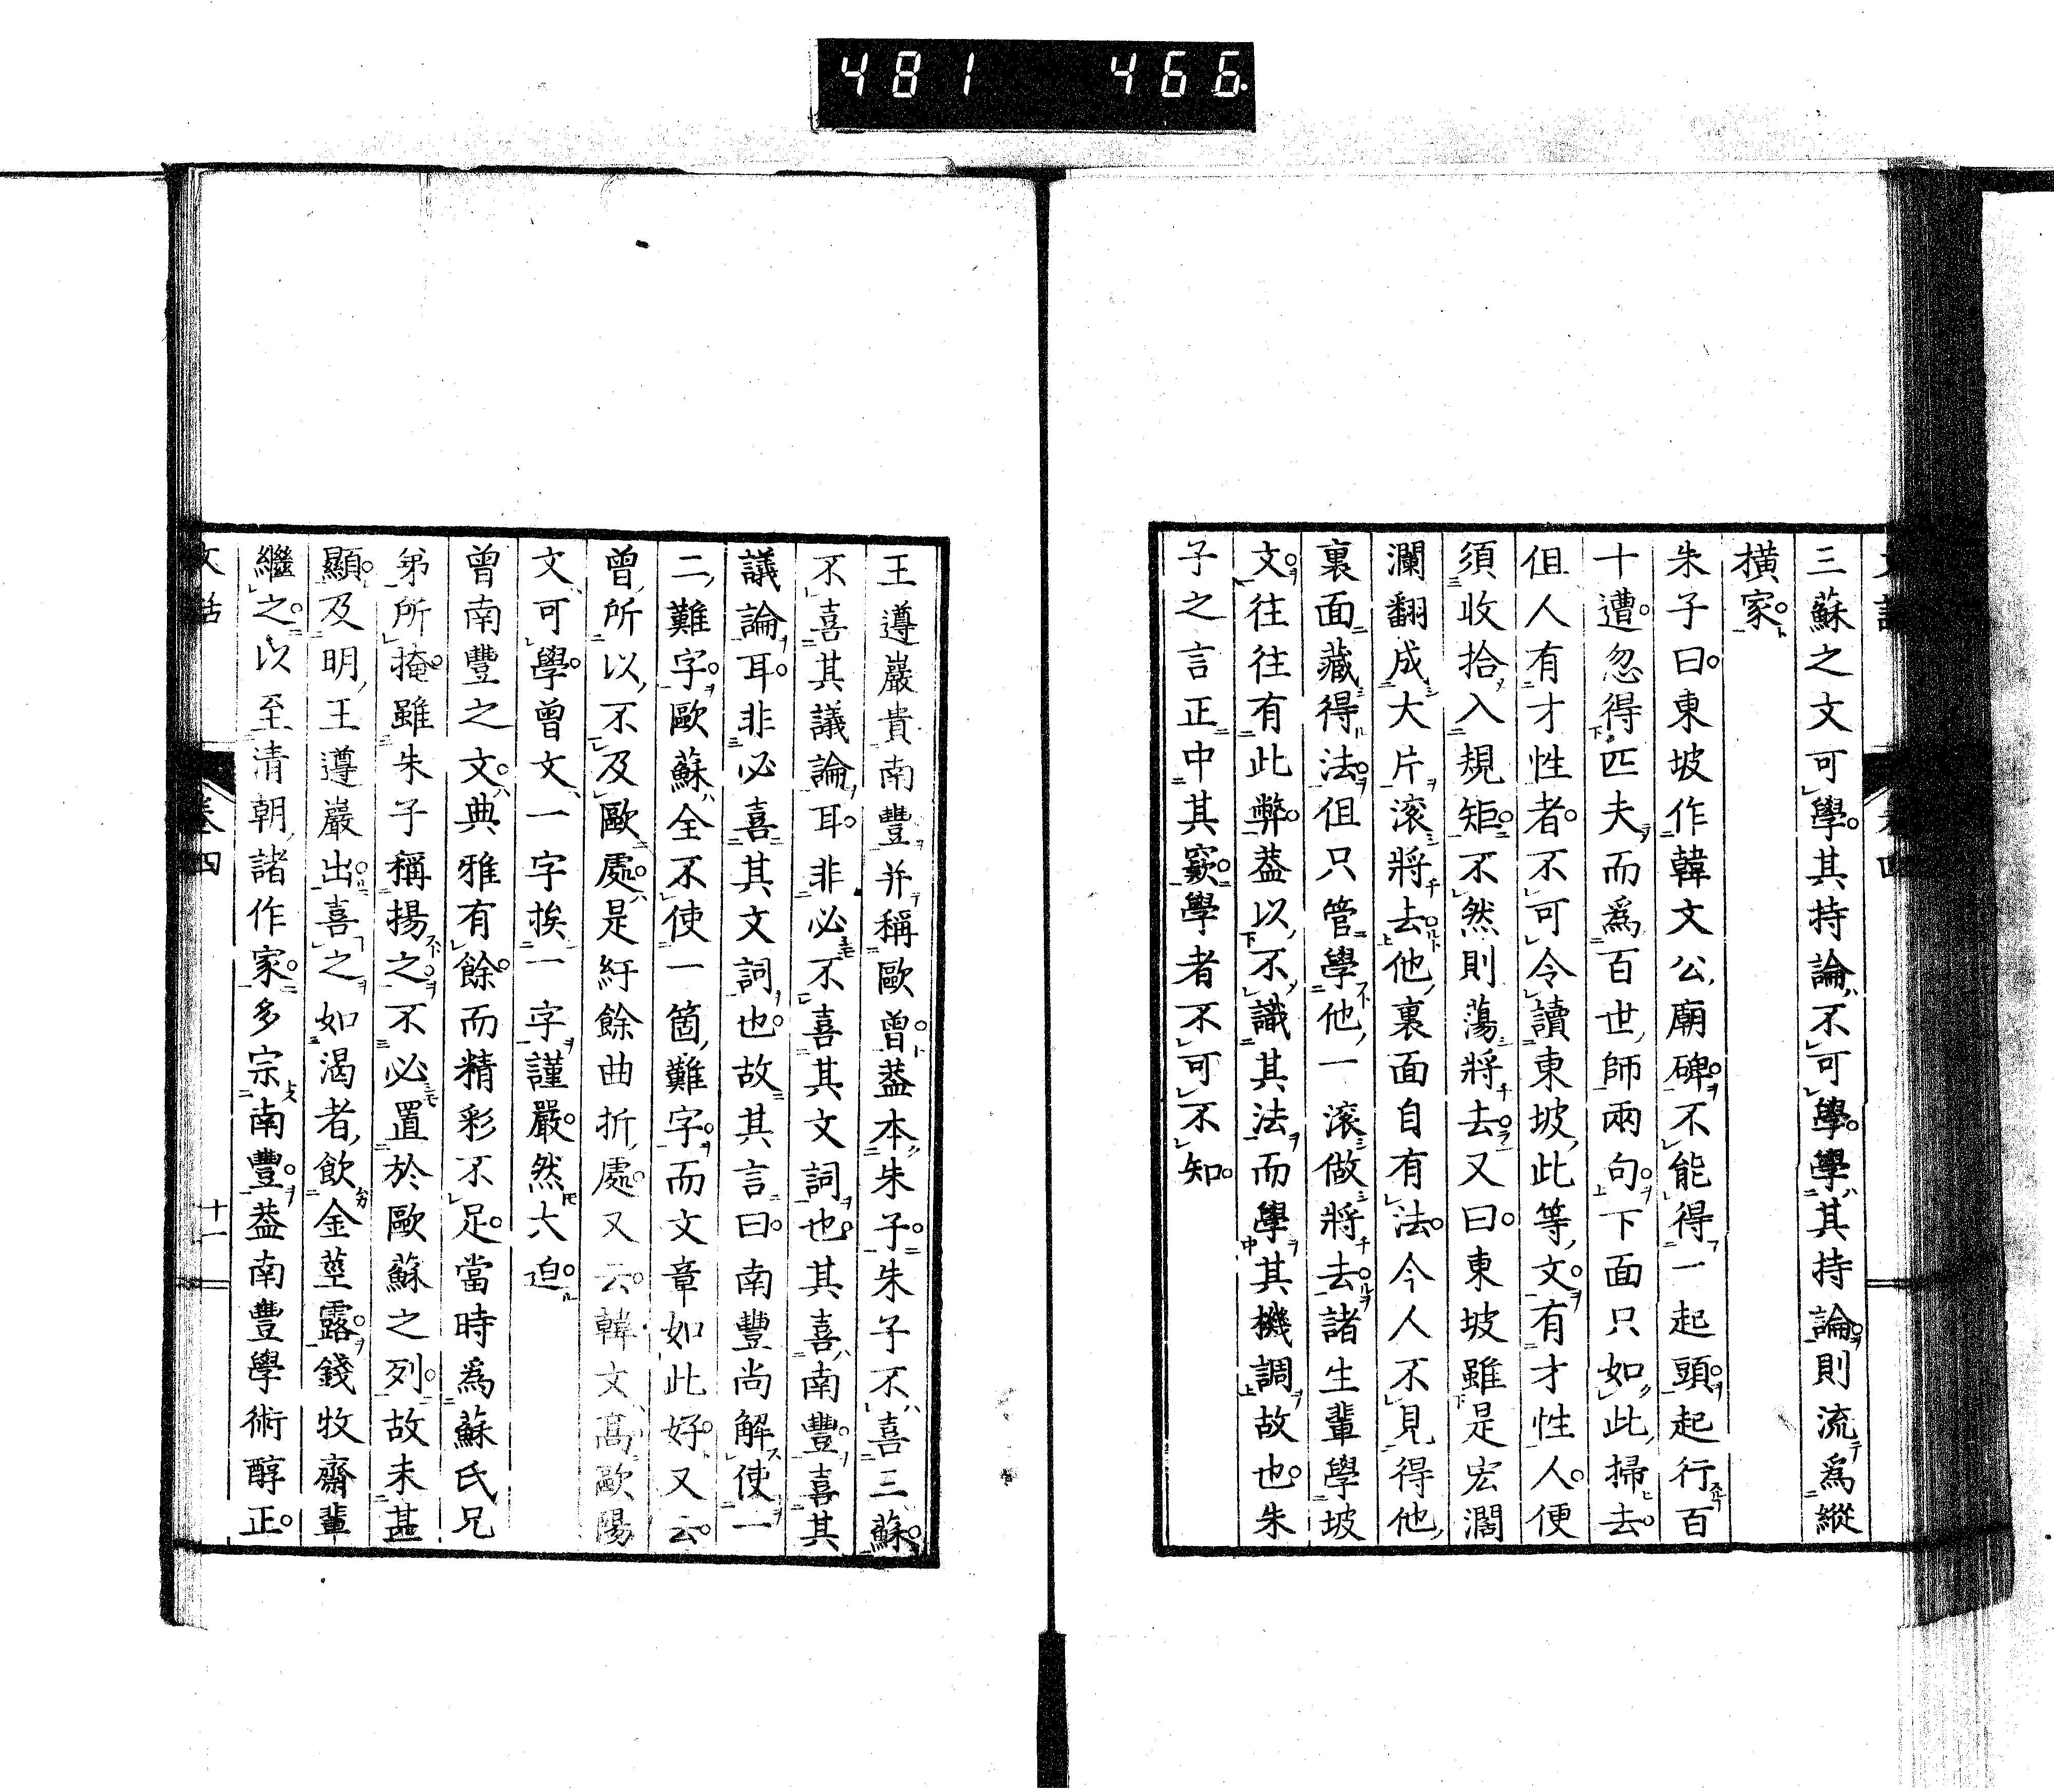 481 466
三蘇之文可學其持論不可學學其持論則流爲縱
橫家
朱子曰東坡作韓文公廟碑不能得一起頭起行百
十遭忽得匹夫而爲百世師兩句下面只如此掃去
但人有才性者不可令讀東坡此等文有才性人便
須收拾入規矩不然則蕩將去又曰東坡雖是宏濶
瀾翻成大片滚將去他裏面自有法今人不見得他
裏面藏得法但只管學他一滚做將去諸生輩學坡
文往往有此弊葢以不識其法而學其機調故也朱
子之言正中其窾學者不可不知
王遵巖貴南豐并稱歐曾葢本朱子朱子不喜三蘇
不喜其議論耳非必不喜其文詞也其喜南豐喜其
議論耳非必喜其文詞也故其言曰南豐尚解使一
二難字歐蘇全不使一箇難字而文章如此好又云
曾所以不及歐處是紆餘曲折處又云韓文高歐陽
文可學曾文一字挨一字謹嚴然大迫
曾南豐之文典雅有餘而精彩不足當時爲蘇氏兄
弟所掩雖朱子稱揚之不必置於歐蘇之列故未甚
顯及明王遵巖出喜之如渴者飲金莖露錢牧齋輩
繼之以至清朝諸作家多宗南豐葢南豐學術醇正
文話 卷四 十一